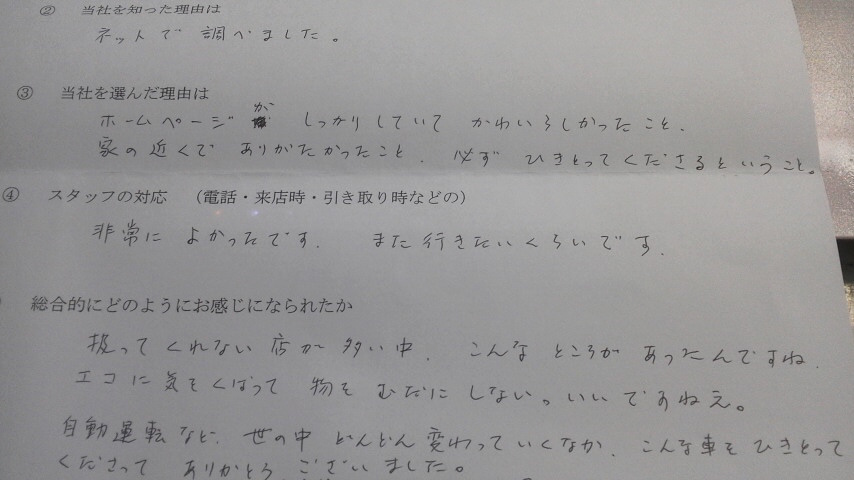 ② 当社を知った理由は
ネットで 調べました。
③ 当社を選んだ理由は
ホームページが しっかりしていて かわいらしかったこと、
家の近くで ありがたかったこと、必ず ひきとってくださるということ。
④ スタッフの対応 （電話・来店時・引き取り時などの）
非常に よかったです、 また行きたいくらいです、
総合的にどのようにお感じになられたか
扱ってくれない店が多い中、 こんな ところが あったんですね、
エコに気をくばって 物を むだに しない。いいですねえ。
自動運転など、世の中 どんどん変わっていくなか、こんな車を ひきとって
くださって ありがとう ございました。